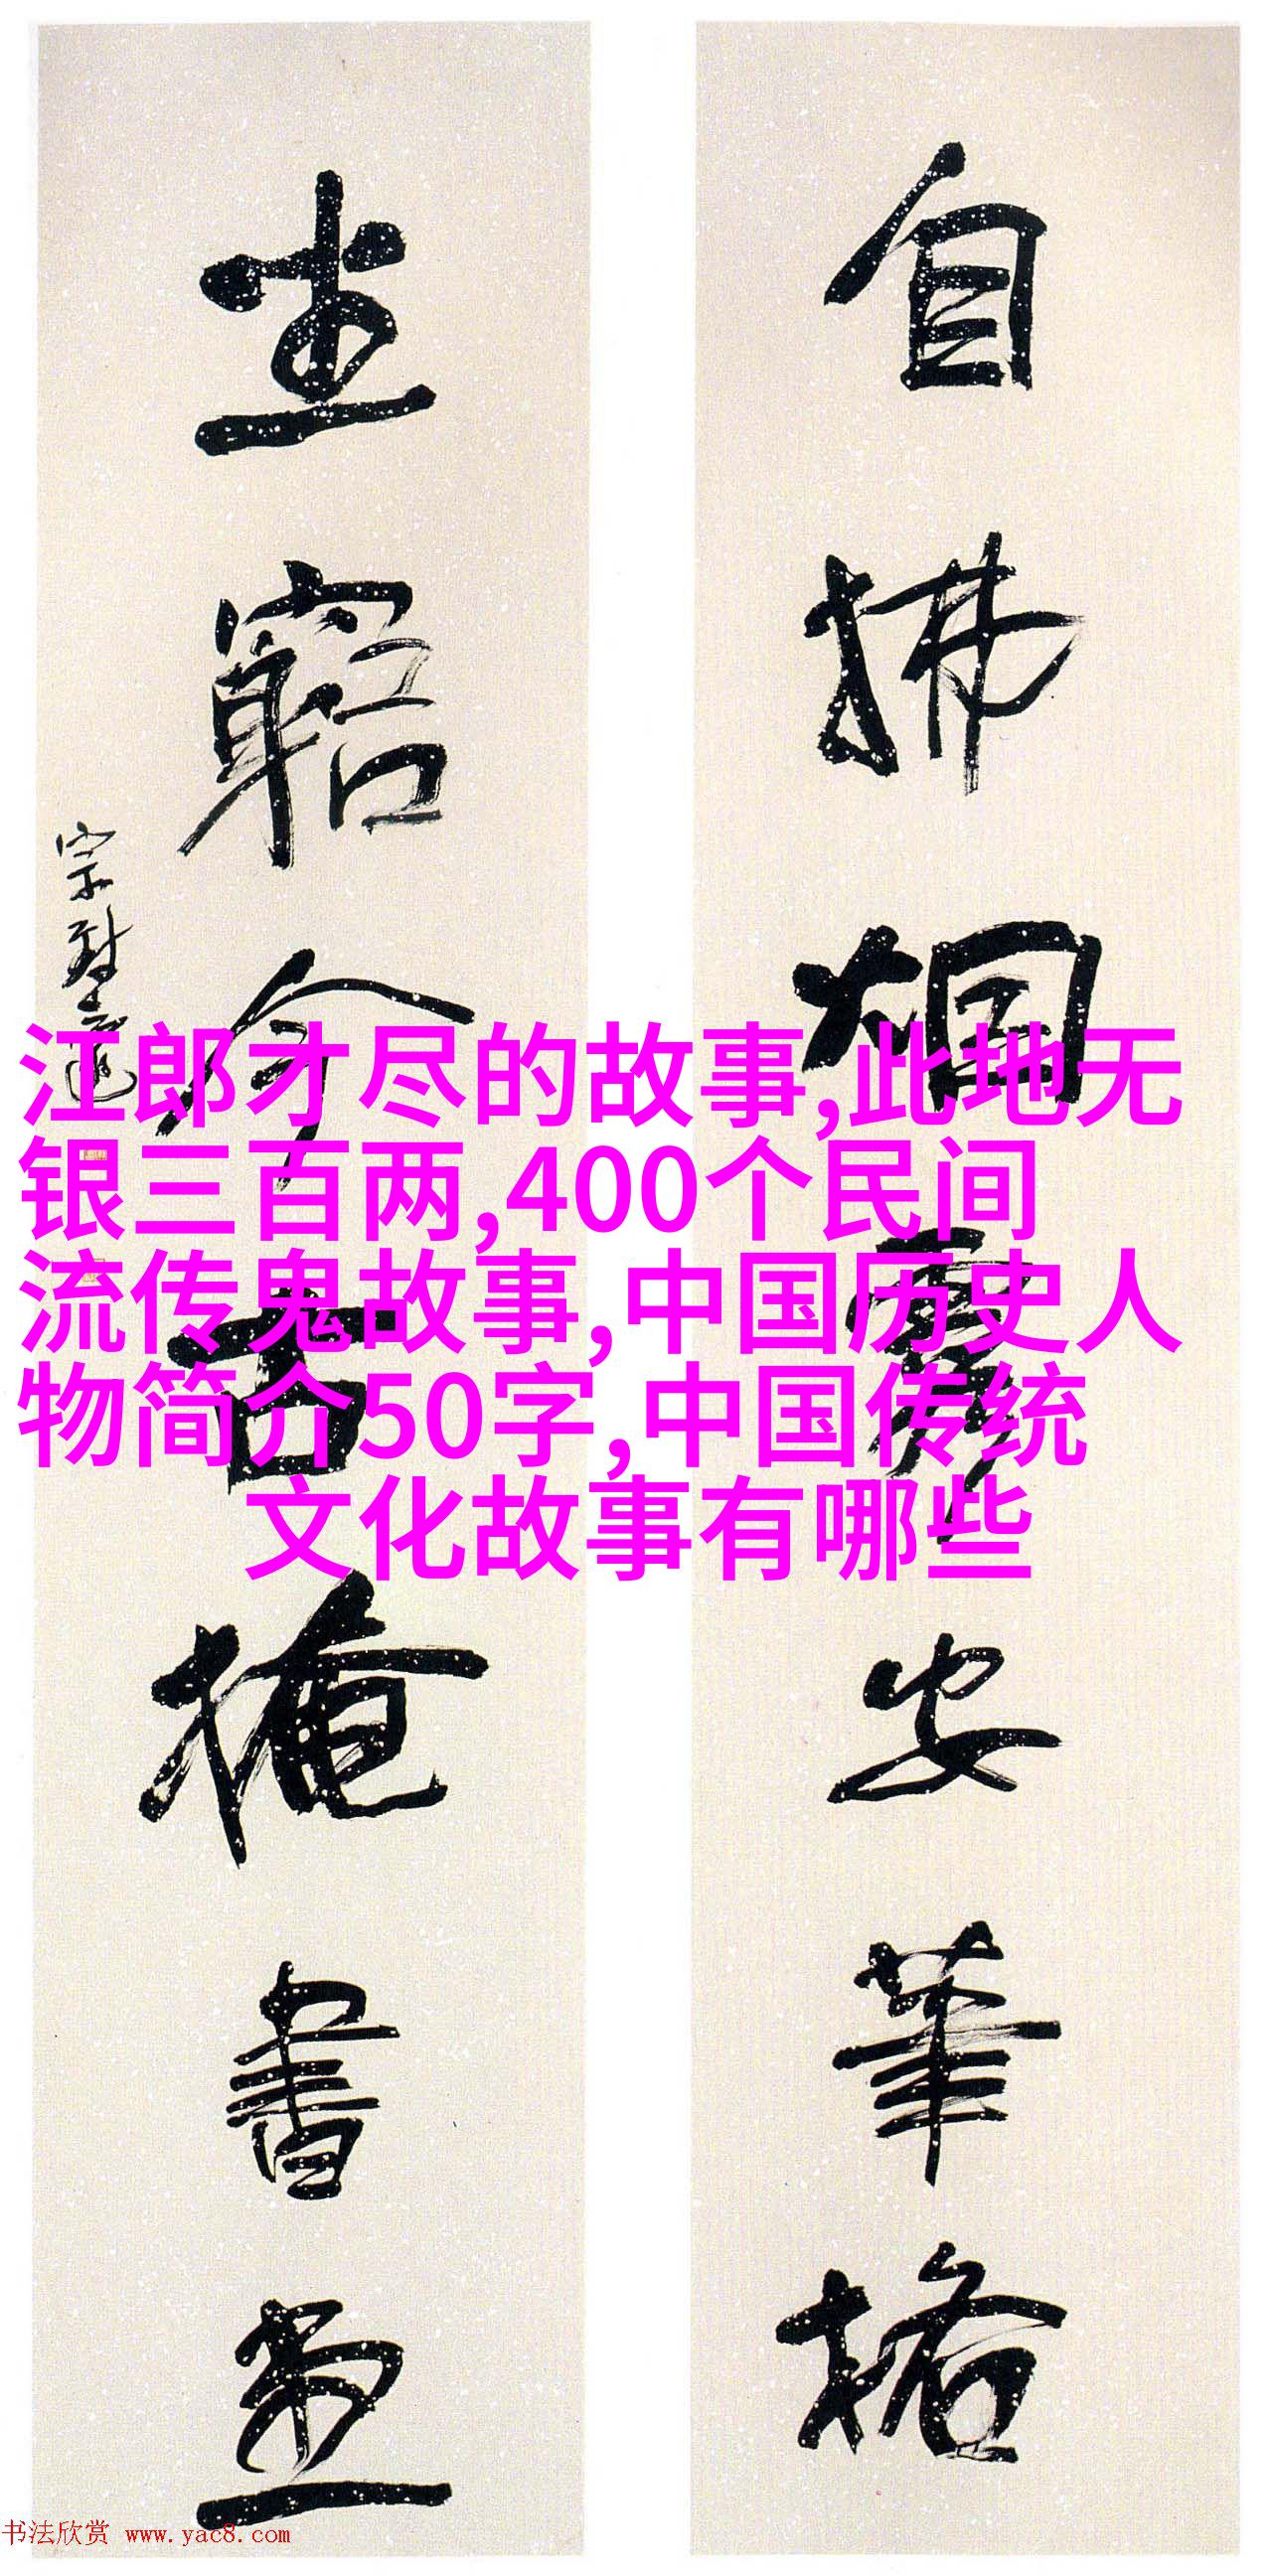 自拂烟霞安筆格
坐窮今古掩書堂
江郎才尽的故事,此地无
银三百两,400个民间
流传鬼故事,中国历史人
物简介50字,中国传统
文化故事有哪些
书法欣赏 www.yac8.com